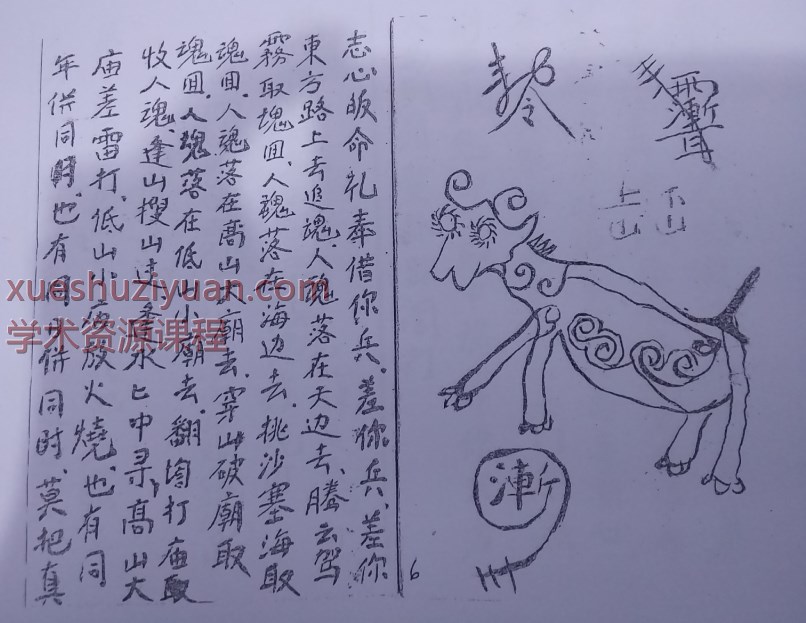 志心皈命礼奉借你兵、差你兵、差你
東方路上去追魂、人魂落在天边去、腾云驾
霧取魂囬、人魂落在海边去、挑沙塞海取
魂囬、人魂落在高山大廟去、穿山破廟取
魂囬、人魂落在低山小廟去、翻坛打庙取
牧人魂、逢山搜山 水匕中寻、高山大
庙差雷打、低山小 放火燒、也有同
年併同 也有同 併同时、莫把真
山 山
漸
6
xueshuziyuan.com
学术资源课程